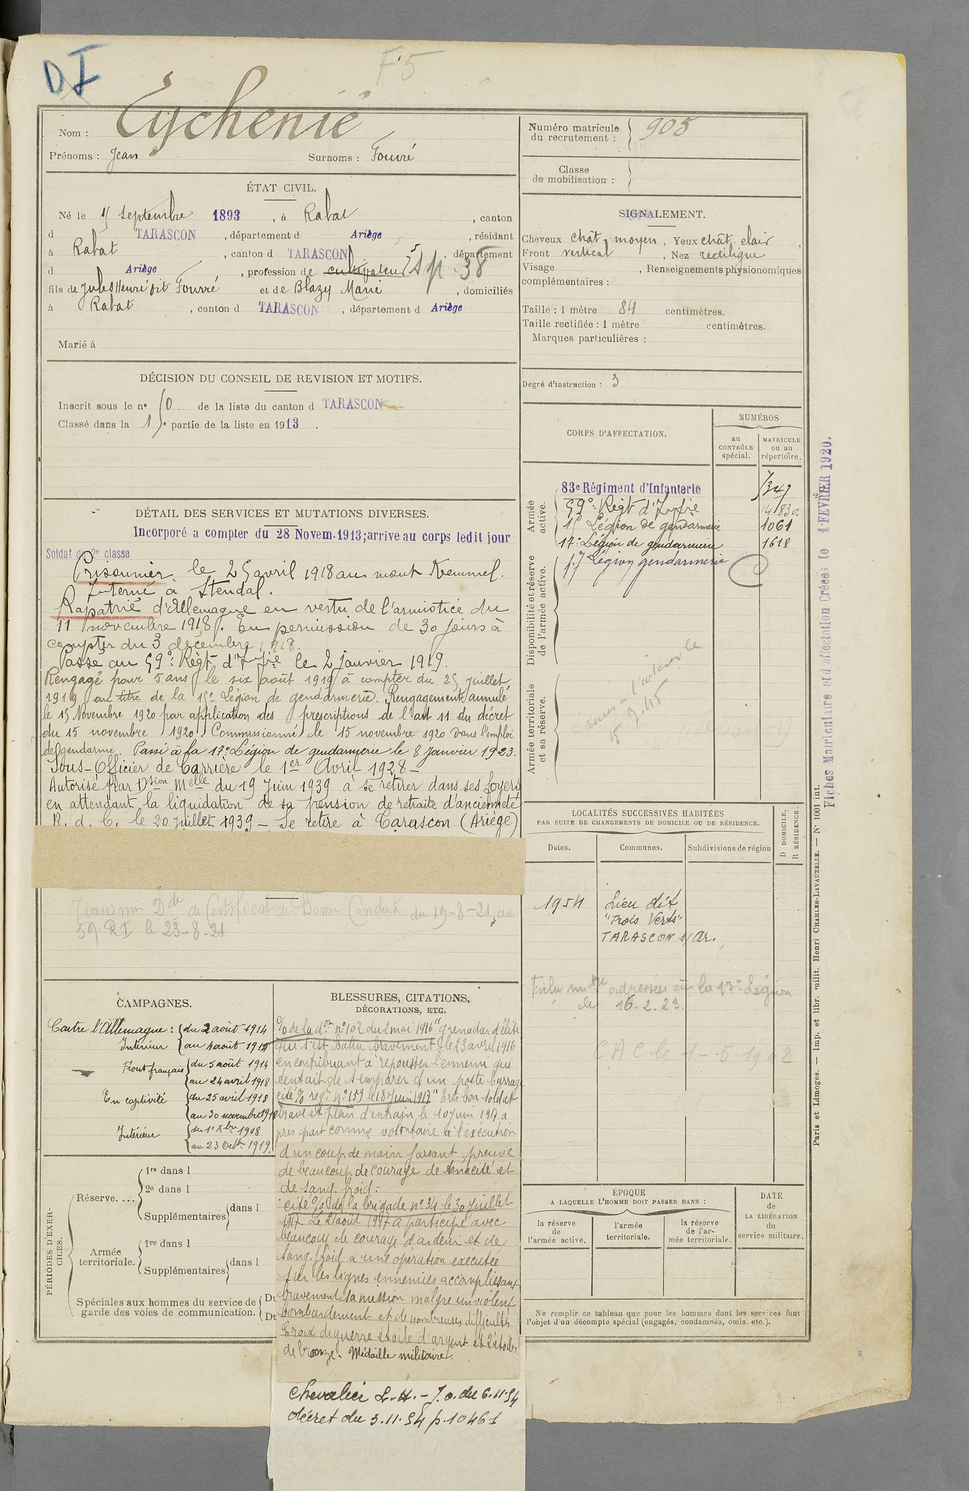 DI
F5
Nom : Eychenié
Prénoms : Jean Surnoms : Fourré
ÉTAT CIVIL.
Né le septembre 1893, à Rabat, canton
d TARASCON, département d Ariège, résidant
à Rabat, canton d TARASCON, département
d Ariège, profession de cultivateur Sp. 38
fils de Jules Henri dit Fourré et de Blazy Marie, domiciliés
à Rabat, canton d TARASCON, département d Ariège
Marié à
DÉCISION DU CONSEIL DE REVISION ET MOTIFS.
Inscrit sous le n° 50 de la liste du canton d TARASCON
Classé dans la 1re partie de la liste en 1913.
DÉTAIL DES SERVICES ET MUTATIONS DIVERSES.
Incorporé a compter du 28 Novem. 1913; arrive au corps ledit jour
Soldat de 2e classe
Prisonnier le 25 avril 1918 au mont Kemmel.
Interné à Stendal.
Rapatrié d'Allemagne en vertu de l'armistice du
11 novembre 1918. En permission de 30 jours à
compter du 3 décembre 1918
Passé au 59e Régt d'Infrie le 2 janvier 1919.
Rengagé pour 5 ans le six août 1919 à compter du 25 juillet
1919 au titre de la 15e Légion de gendarmerie. Rengagement annulé
le 15 Novembre 1920 par application des prescriptions de l'art 11 du décret
du 15 novembre 1920. Commissionné le 15 novembre 1920 dans l'emploi
de gendarme. Passé à la 17e Légion de gendarmerie le 8 Janvier 1923.
Sous-Officier de Carrière le 1er Avril 1928 -
Autorisé par Dsion Melle du 19 Juin 1939 à se retirer dans ses foyers
en attendant la liquidation de sa pension de retraite d'ancienneté
R. d. C. le 20 juillet 1939 - Se retire à Tarascon (Ariège)
Transmis Dde de Certificat de Bonne Conduite du 19-8-21 au
59 RI le 23-8-21
CAMPAGNES.
Contre l'Allemagne : du 2 août 1914
Intérieur au 4 août 1914
Front français du 5 août 1914
au 24 avril 1918
En captivité du 25 avril 1918
au 30 novembre 1918
Intérieur du 1er Xbre 1918
au 23 Octb 1919
BLESSURES, CITATIONS,
DÉCORATIONS, ETC.
O/ de la don n° 102 du 2 mai 1916 "grenadier d'élite
qui s'est battu bravement le 23 avril 1916
en contribuant à repousser l'ennemi qui
tentait de s'emparer d'un poste barrage
cité O/ régt n° 157 le 18 juin 1917 "Très bon soldat
brave et plein d'entrain, le 10 juin 1917 a
pris part comme volontaire à l'exécution
d'un coup de main faisant preuve
de beaucoup de courage de ténacité et
de sang froid.
cité O/ de la brigade n° 34 le 30 juillet
1917. Le 21 août 1917 a participé avec
beaucoup de courage d'ardeur et de
sang froid a une opération exécutée
sur les lignes ennemies accomplissant
bravement sa mission malgré un violent
bombardement et de nombreuses difficultés
Croix de guerre étoile d'argent et 2 étoiles
de bronze. Médaille militaire.
Chevalier L.H. - J.O. du 6.11.54
décret du 3.11.54 p. 10461
PÉRIODES D'EXERCICES.
Réserve. ...
1re dans l
2e dans l
Supplémentaires dans l
Armée territoriale.
1re dans l
Supplémentaires dans l
Spéciales aux hommes du service de
garde des voies de communication.
Du
Du
Numéro matricule
du recrutement : 905
Classe
de mobilisation :
SIGNALEMENT.
Cheveux chât. moyen, Yeux chât. clair,
Front vertical, Nez rectiligne
Visage , Renseignements physionomiques
complémentaires :
Taille : 1 mètre 84 centimètres.
Taille rectifiée : 1 mètre centimètres.
Marques particulières :
Degré d'instruction : 3
CORPS D'AFFECTATION.
NUMÉROS
au
CONTRÔLE
spécial.
MATRICULE
ou au
répertoire.
Armée
active.
83e Régiment d'Infanterie 7347
59e Régt d'Infrie
15e Légion de gendarmerie 1061
17e Légion de gendarmerie 1618
17 Légion gendarmerie
Disponibilité et réserve
de l'armée active.
Armée territoriale
et sa réserve.
LOCALITÉS SUCCESSIVES HABITÉES
PAR SUITE DE CHANGEMENTS DE DOMICILE OU DE RÉSIDENCE.
Dates.
Communes.
Subdivisions de région
D DOMICILE.
R RÉSIDENCE.
1954 Lieu dit
"Trois Verts"
TARASCON s/Ar.
adressée à la 17e Légion
le 16.2.23.
ÉPOQUE
A LAQUELLE L'HOMME DOIT PASSER DANS :
la réserve
de
l'armée active.
l'armée
territoriale.
la réserve
de l'ar-
mée territoriale.
DATE
de
LA LIBÉRATION
du
service militaire.
Ne remplir ce tableau que pour les hommes dont les services font
l'objet d'un décompte spécial (engagés, condamnés, omis, etc.).
Fiches Matriculaire et d'affectation Créées le 4 FEVRIER 1920.
Paris et Limoges. — Imp. et libr. milit. Henri CHARLES-LAVAUZELLE. — N° 1001 int.